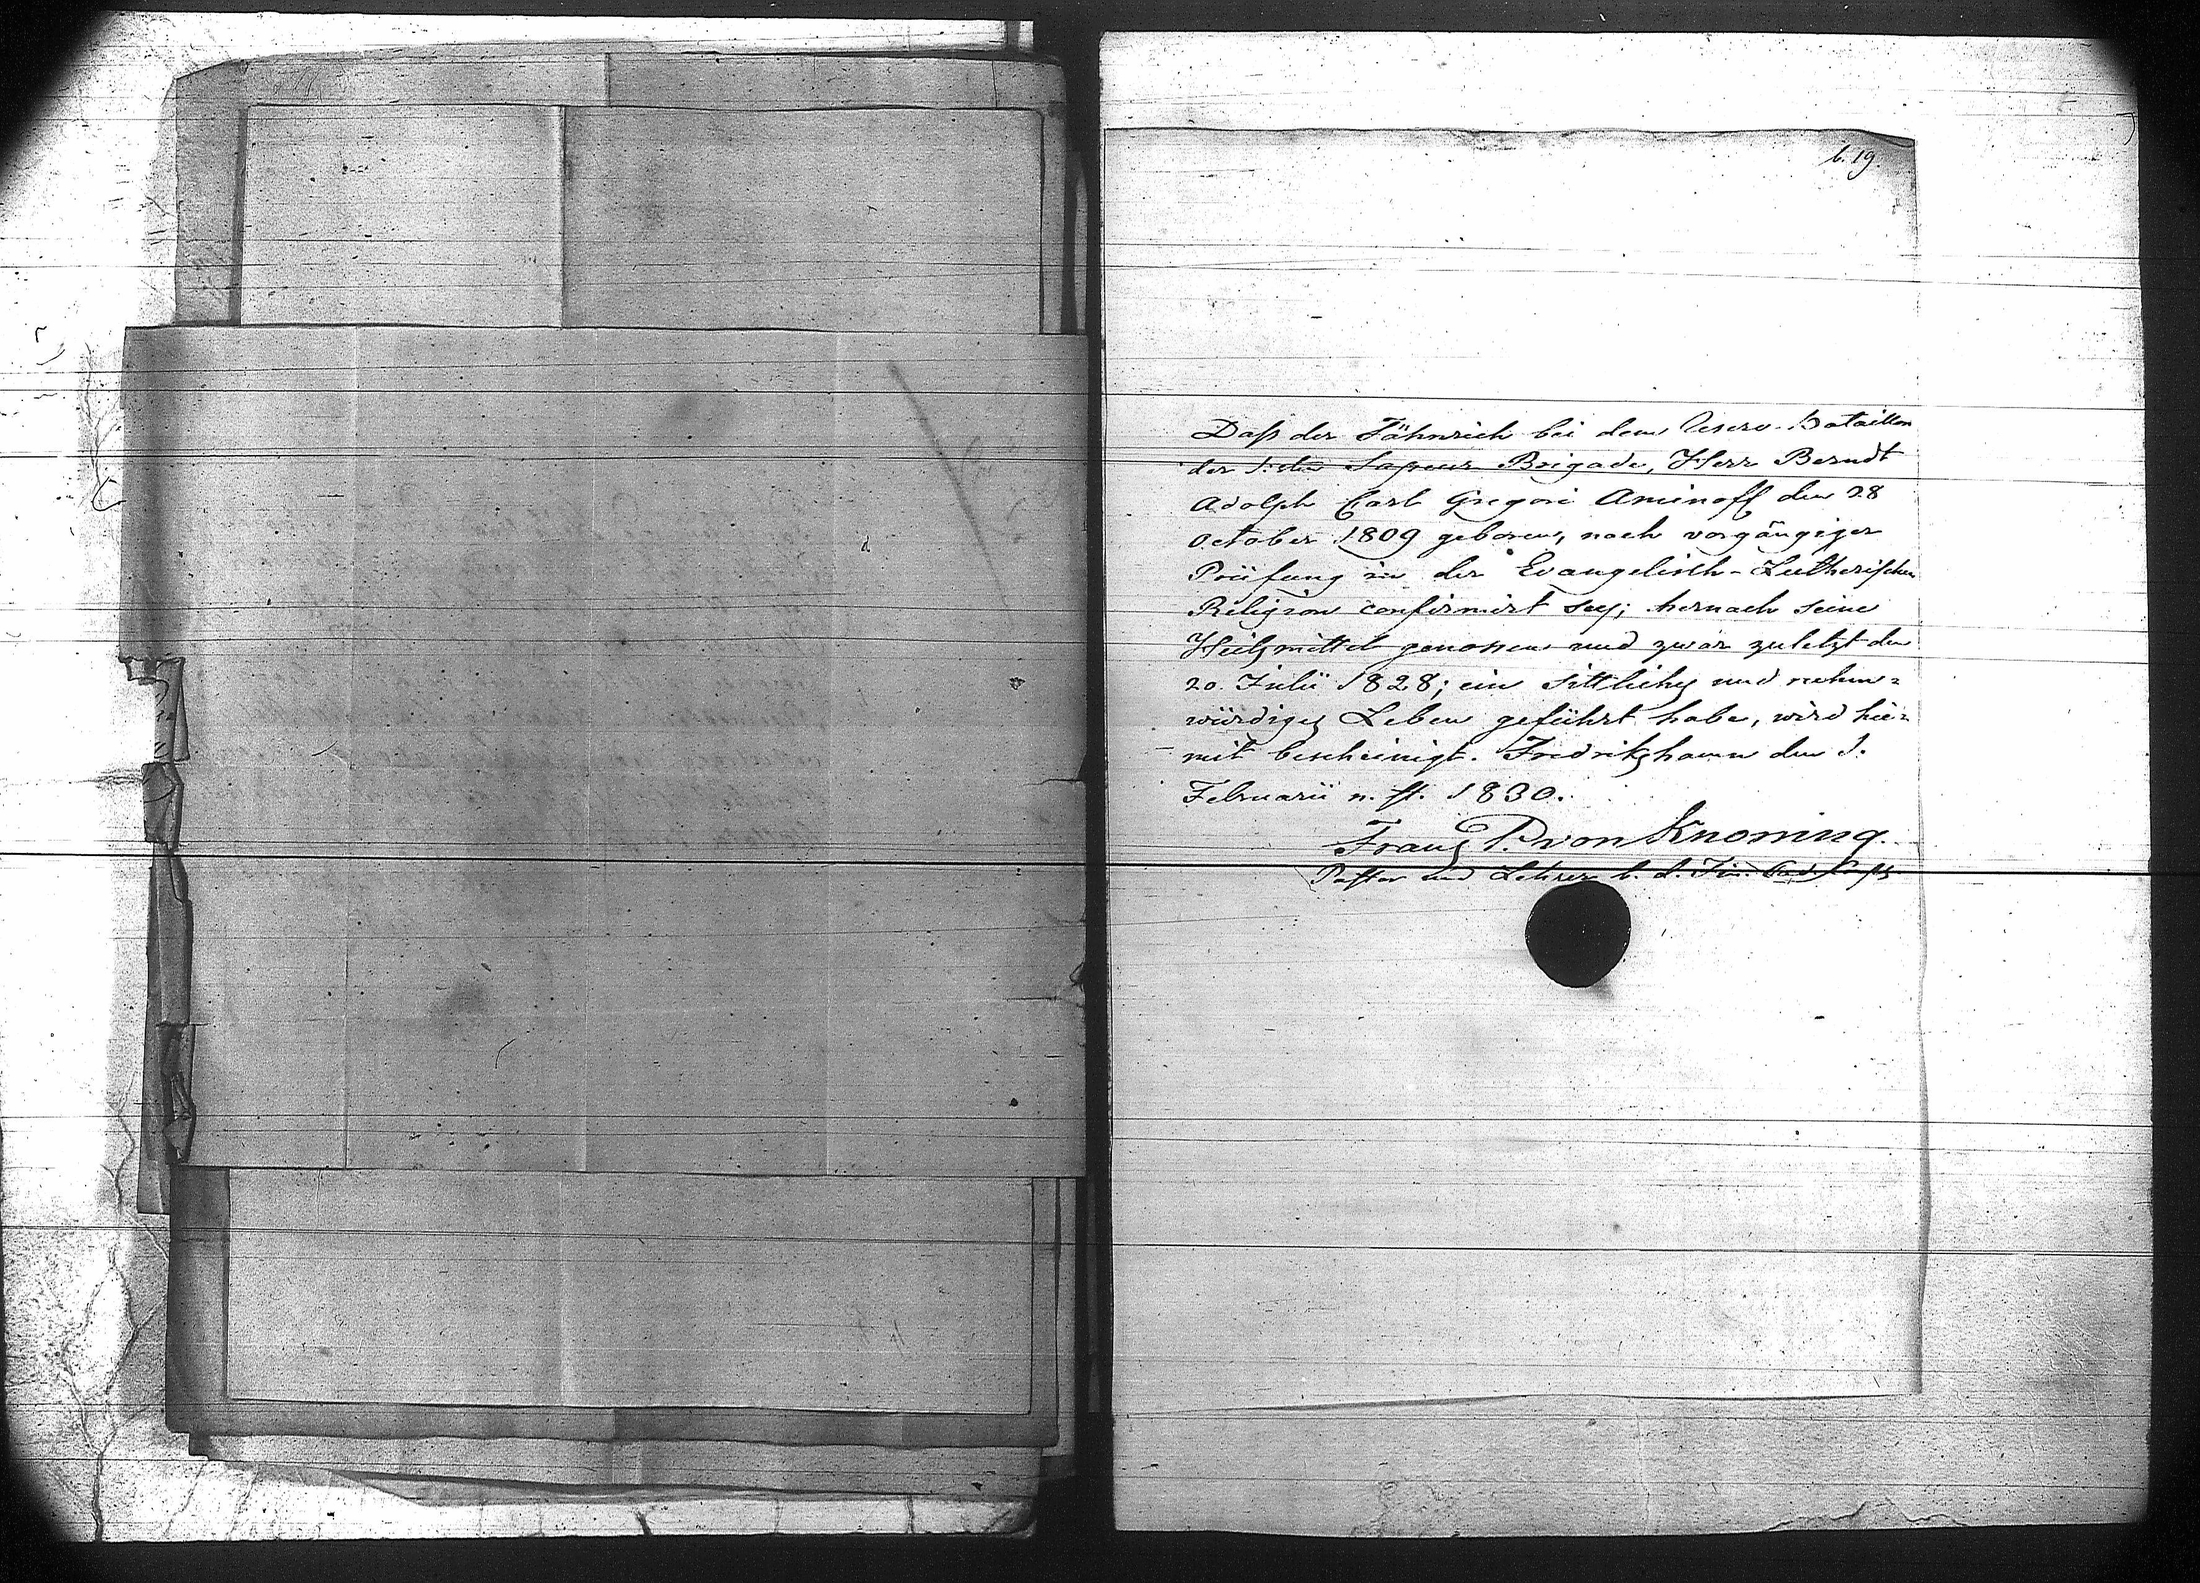 b. 19.
Daß der Fähnrich bei dem Reserv-Bataillon
der 1. der Sapeur Brigade, Herr Berndt
Adolph Carl Gregori Aminoff den 28
October 1809 geboren, nach vorgängiger
Prüfung in der Evangelisch-Lutherischen
Religion confirmirt sey; hernach seine
Heilsmittel genossen und zwar zuletzt den
20. Julii 1828; ein sittliches und ruhm=
würdiges Leben geführt habe, wird hie=
mit bescheinigt. Fredrikshamn den 1.
Februarii n. st. 1830.
Franz P. von Knorring.
Pastor und Lehrer b. d. Fin. Cad. Corps